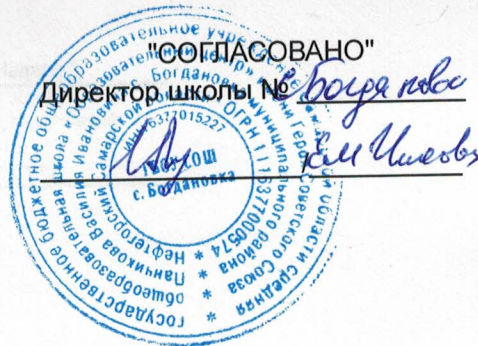 "СОГЛАСОВАНО"
Директор школы № с. Богдановка
Е.М.
государственное бюджетное общеобразовательное учреждение Самарской области средняя
общеобразовательная школа «Образовательный центр» имени Героя Советского Союза
Панчикова Василия Ивановича с. Богдановка муниципального района
Нефтегорский Самарской области * ОГРН 1116377000574 *
ИНН 6377015227
ГБОУ СОШ
с. Богдановка